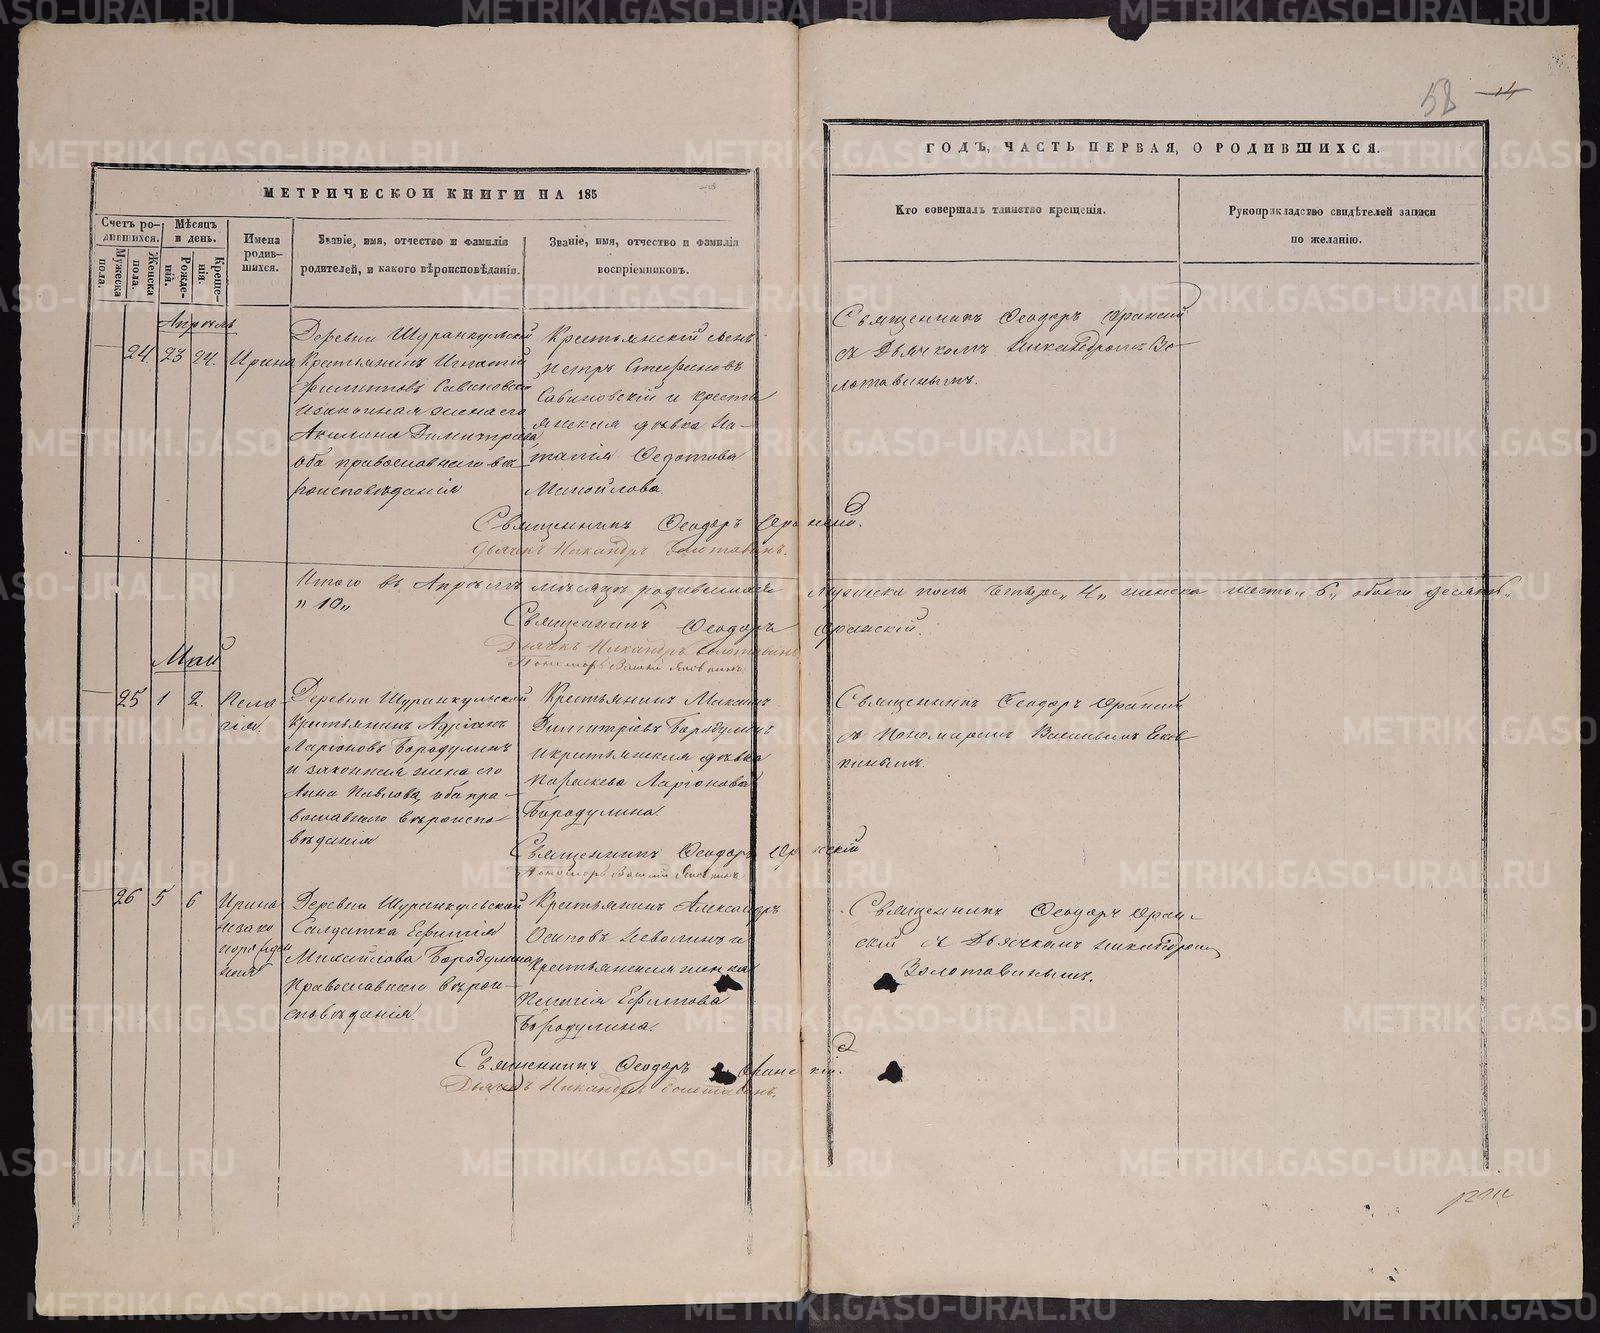 58 14
МЕТРИЧЕСКОЙ КНИГИ НА 185
ГОДЪ, ЧАСТЬ ПЕРВАЯ, О РОДИВШИХСЯ.
Счетъ ро-
дившихся.
Мужеска
пола.
Женска
пола.
Мѣсяцъ
и день.
Рожде-
нія.
Креще-
нія.
Имена
родив-
шихся.
Званіе, имя, отчество и фамилія
родителей, и какого вѣроисповѣданія.
Званіе, имя, отчество и фамилія
воспріемниковъ.
Кто совершалъ таинство крещенія.
Рукоприкладство свидѣтелей записи
по желанію.
Апрѣль
24 23 24. Ирина
Деревни Шуранкульской
Крестьянинъ Игнатій
Филипповъ Савиновской
и законная жена его
Акилина Димитріева
оба православнаго вѣ-
роисповѣданія
Крестьянскій сынъ
Петръ Стефановъ
Савиновскій и крестья
янская дѣвка На-
талія Федотова
Манойлова.
Священникъ Феодоръ
съ Дьячкомъ Никандромъ Зо-
лотавинымъ.
Священникъ Феодоръ
Дьячекъ Никандръ Золотавинъ.
Итого въ Апрѣлѣ мѣсяцѣ родившихся мужеска пола четыре „4„ женска шесть „6„ обоего десять
„10„
Священникъ Феодоръ
Дьячекъ Никандръ Золотавинъ
Пономарь
Май
25 1 2. Пела
гія.
Деревни Шуранкульской
крестьянинъ Адріанъ
Ларіоновъ Бородулинъ
и законная жена его
Анна Павлова, оба пра-
вославнаго вѣроиспо-
вѣданія
Крестьянинъ Максимъ
Димитріевъ Бородулинъ
и крестьянская дѣвка
Параскева Ларіонова
Бородулина.
Священникъ Феодоръ
съ Пономаремъ Васильемъ
Священникъ Феодоръ
Пономарь
26 5 6 Ирина
незако
норожден
ная
Деревни Шуранкульской
Солдатка Ефимія
Михайлова Бородулина
Православнаго вѣрои-
сповѣданія.
Крестьянинъ Александръ
Осиповъ Неволинъ и
Крестьянская женка
Пелагія Ефимова
Бородулина.
Священникъ Феодоръ
скій съ Дьячкомъ Никандромъ
Золотавинымъ.
Священникъ Феодоръ
Дьячекъ Никандръ Золотавинъ.
METRIKI.GASO-URAL.RU